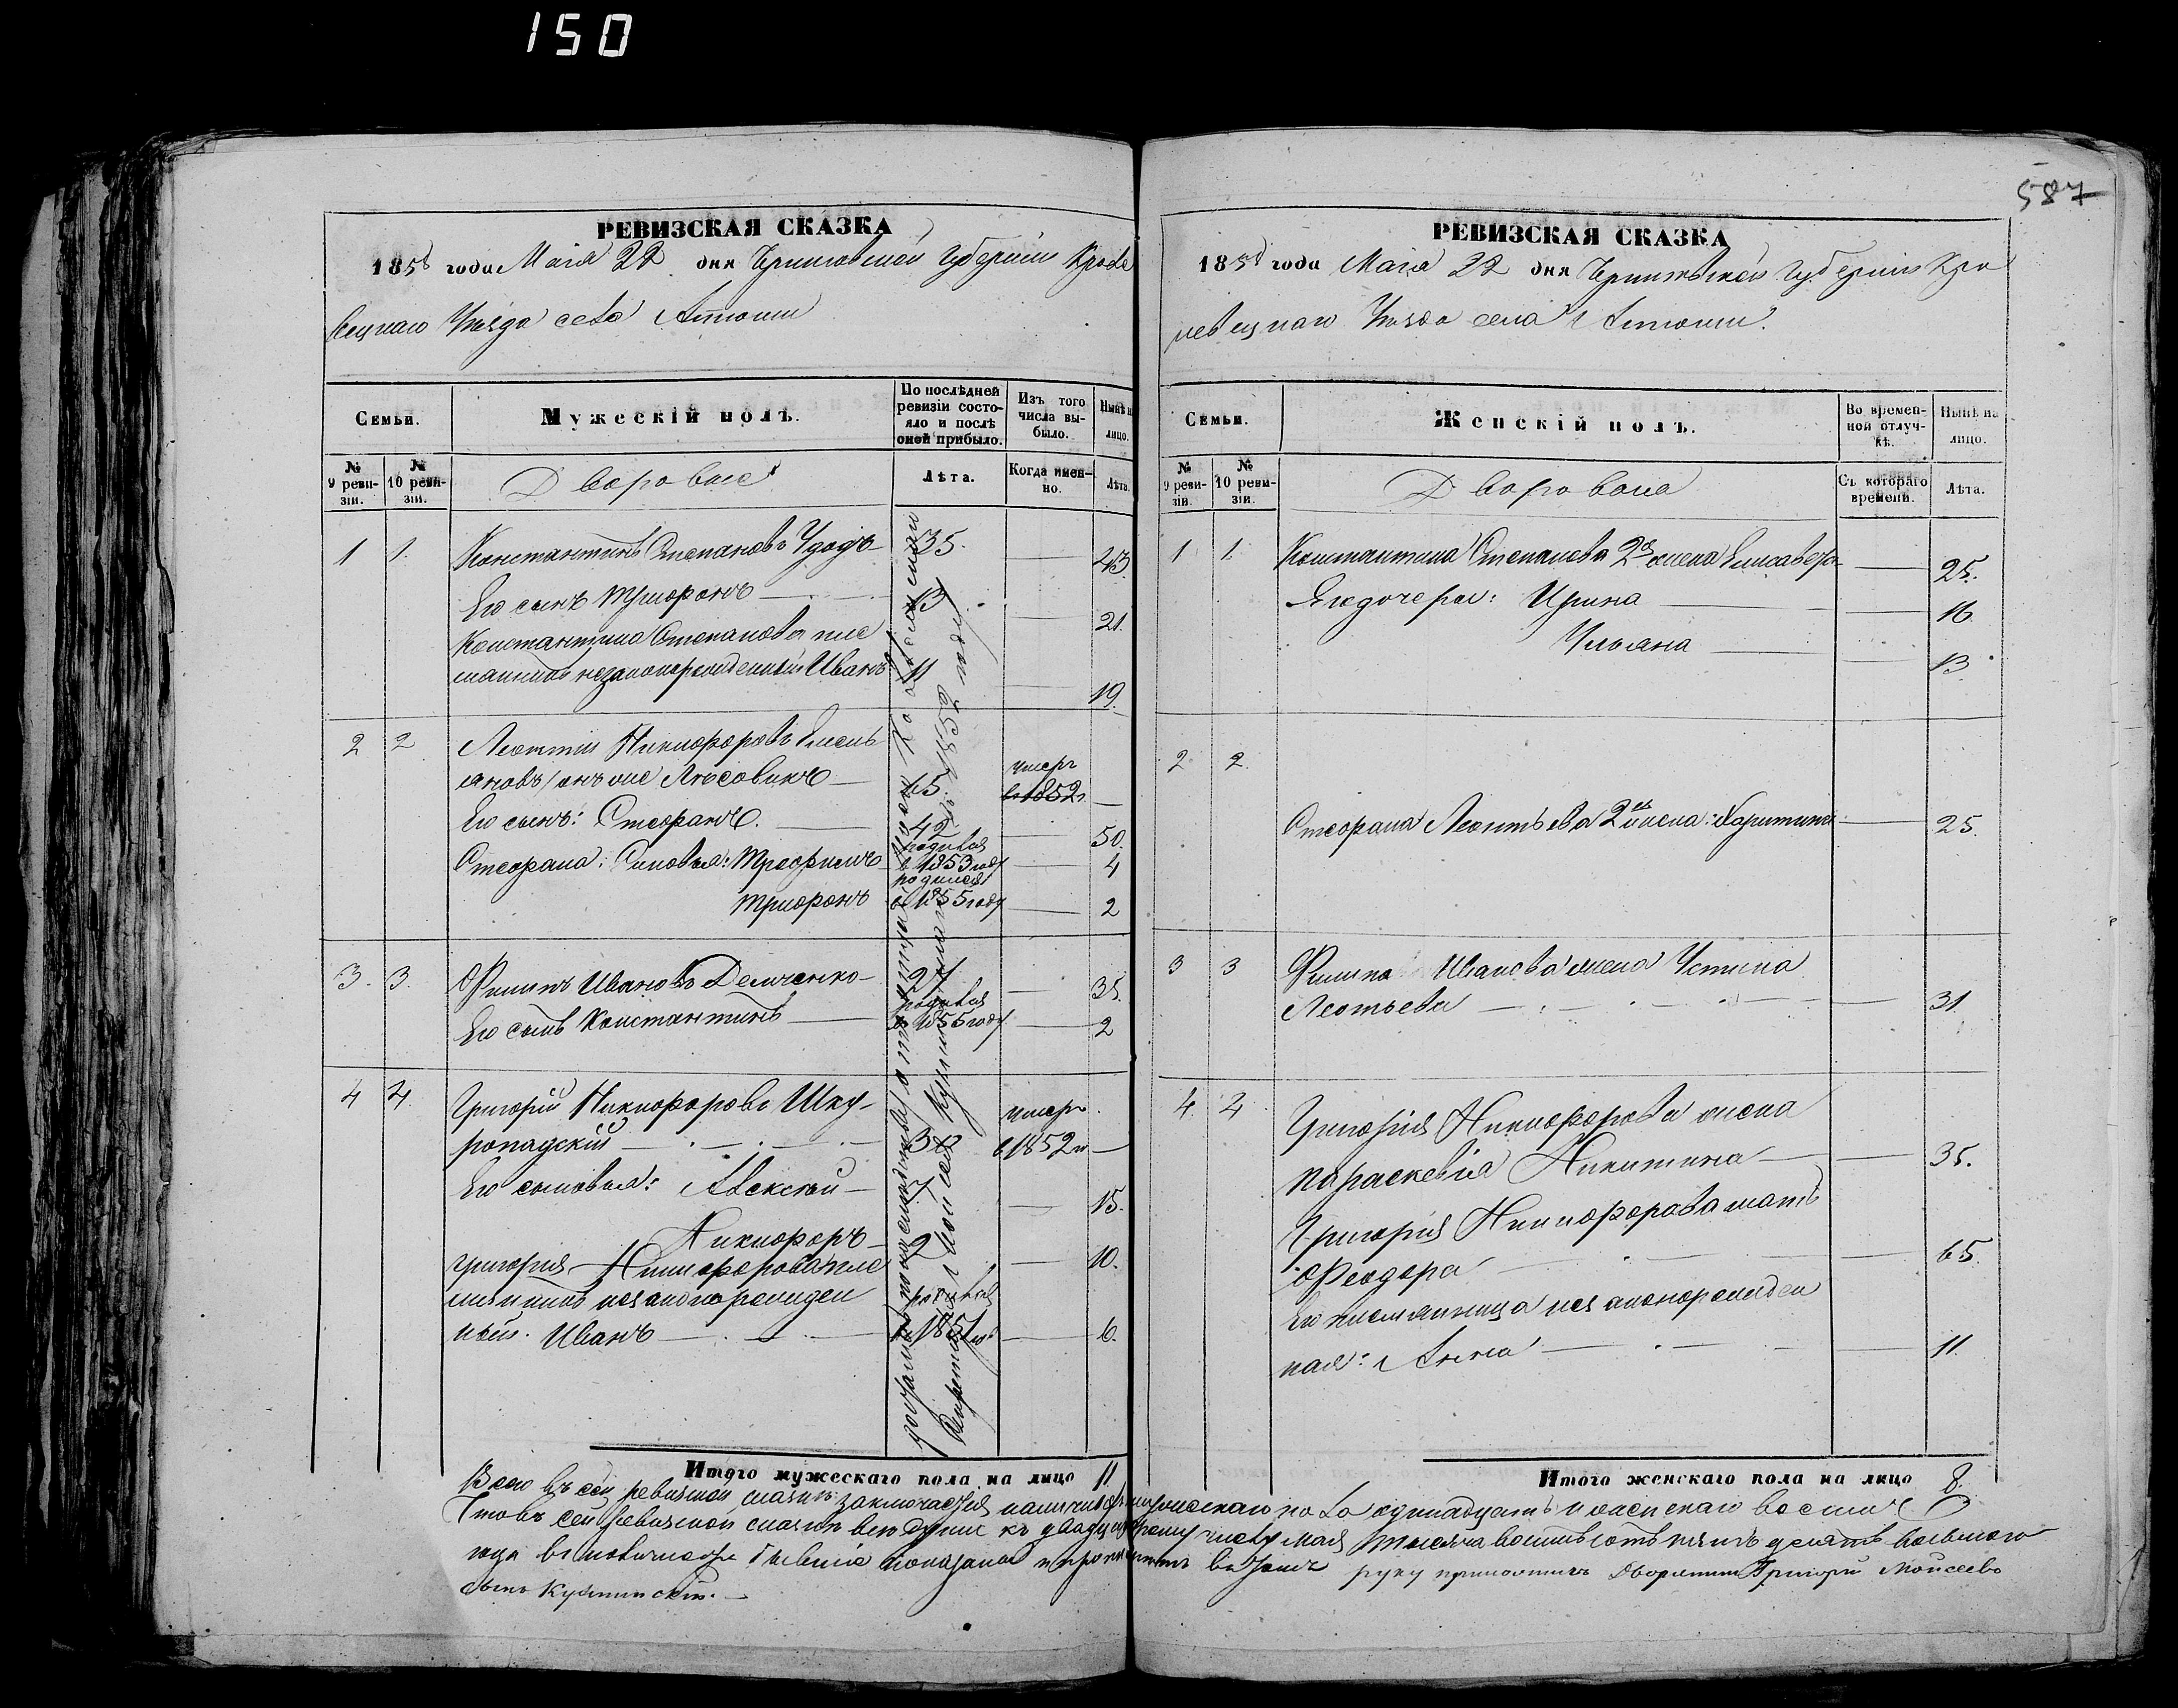 150
587
РЕВИЗСКАЯ СКАЗКА
1858 года Маія 22 дня Черниговской Губерніи Кроле
вецкаго Уѣзда села
Семьи.
Мужескій полъ.
По послѣдней ревизіи состояло и послѣ оной прибыло.
Изъ того числа выбыло.
Нынѣ на лицо.
№ 9 ревизіи.
№ 10 ревизіи.
Дворовые
Лѣта.
Когда именно.
Лѣта.
1 1. Константинъ Степановъ Удодъ — 35. — 43.
Его сынъ Трифонъ — 13 — 21.
Константина Степанова пле
мянникъ незаконорожденный Иванъ 11 — 19.
2 2 Леонтій Никифоровъ Емель
яновъ онъ же Лѣсовикъ — 65. умеръ в 1852 —
Его сынъ: Стефанъ. — 42 — 50.
Стефана: Сыновья: Трофимъ родився в 1853 году — 4
Трифонъ родився в 1855 году — 2
3. 3. Филипъ Ивановъ Демченко — 27 — 35.
Его сынъ Константинъ — родився в 1855 году — 2
4 4. Григорій Никифоровъ Шку-
ропадскій — умеръ в 1852 —
Его сыновья: Алексѣй — 7 — 15.
Никифоръ — 2 — 10.
Григорія Никифорова пле
мянникъ незаконорожден
ный. Иванъ — родився 1851 — 6.
Итого мужескаго пола на лицо 11
РЕВИЗСКАЯ СКАЗКА
1858 года Маія 22 дня Черниговской Губерніи Кро
левецкаго Уѣзда села
Семьи.
Женскій полъ.
Во временной отлучкѣ.
Нынѣ на лицо.
№ 9 ревизіи.
№ 10 ревизіи.
Съ котораго времени.
Лѣта.
1 1. Константина Степанова 2я жена Елисавета — 25.
Его дочери: Ирина — 16
Ульяна — 13
2 2.
Стефана Леонтьева 2я жена: Харитина — 25.
3 3 Филипа Иванова жена Устина
Леонтьева — 31
4. 4 Григорія Никифорова жена
Параскевія Никитина — 35.
Григорія Никифорова мать
Феодора — 65.
Его племянница незаконорожден
ная: Анна — 11.
Итого женскаго пола на лицо 8.
Всего въ сей ревизской сказкѣ заключается на лицо мужескаго пола одинадцать и женскаго восемь
Что въ сей ревизской сказкѣ все души къ двадцать второму числу мая тысяча восемьсотъ пятьдесятъ восьмого
года въ бывшіе показаны и въ томъ руку приложилъ Дворянинъ Григорій Моисеевъ
сынъ